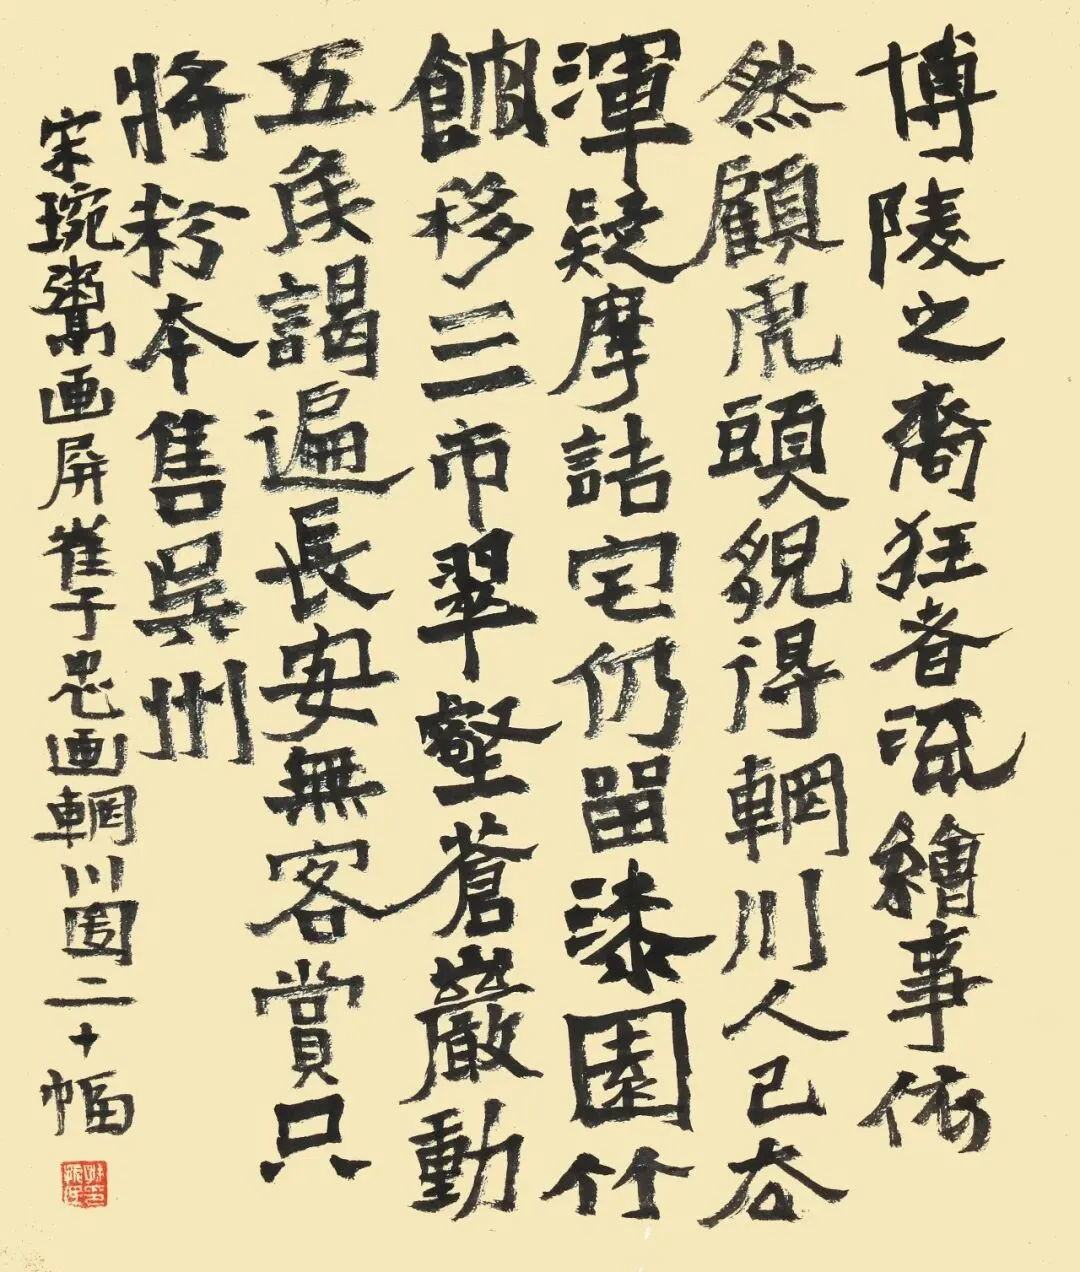 博陵之裔狂者流繪事依
然顧虎頭貌得輞川人已去
渾疑摩詰宅仍留漆園竹
館移三市翠壑蒼巖動
五侯謁遍長安無客賞只
將粉本售吳州
宋琬鬻画屏崔子忠画輞川图二十幅